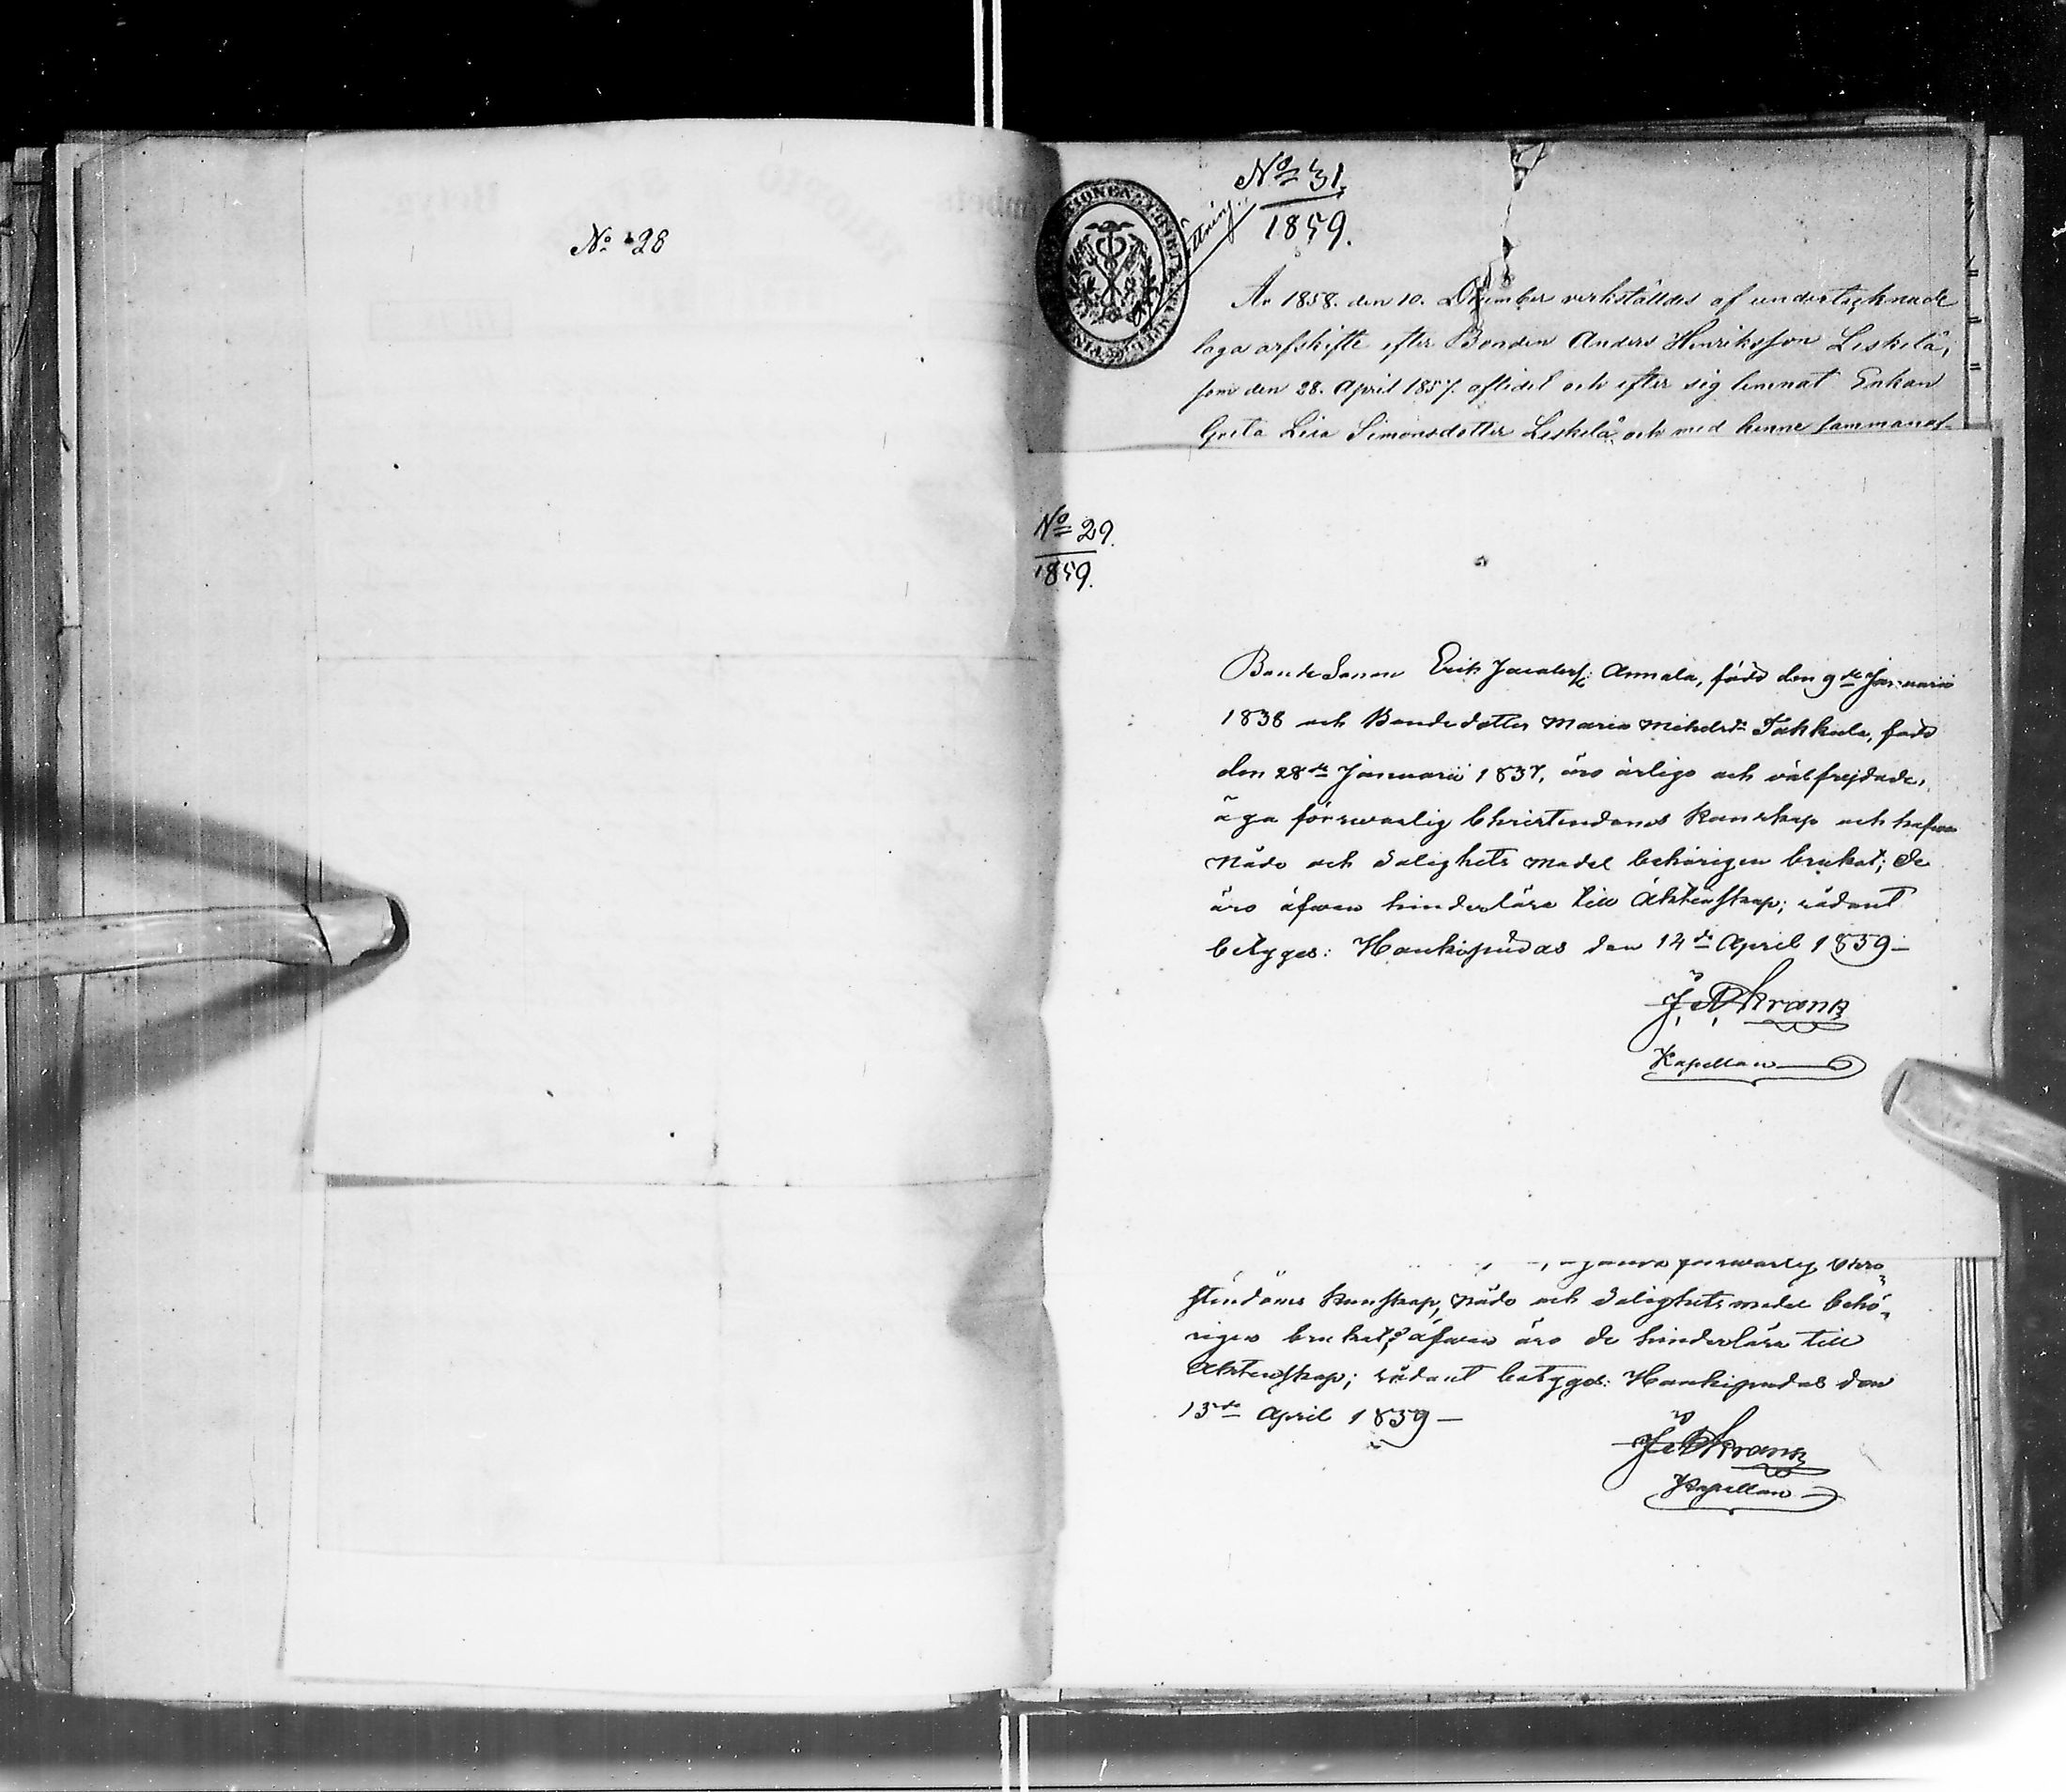 No 28
No 31.
1859.
År 1858. den 10. December verkställdes af undertecknade
laga arfskifte efter Bonden Anders Henriksson Leskelä,
som den 28. April 1857. aflidet och efter sig lemnat Enkan
Greta Lisa Simonsdotter Leskelä och med henne samman af-
No 29.
1859.
Bonde Sonen Erik Jacobss: Annala, född den 9de Januarii
1838 och Bondedotter Maria Mickelsdr. född
den 28de Januarii 1837, äro ärliga och välfrejdade,
äga förswarlig Christendoms Kunskap och hafwa
Nåde och Salighets Medel behörigen brukat; De
äro äfwen hinderlöse till Äktenskap; sådant
betygas: Haukipudas den 14de April 1859 —
J. A. Krank
Kapellan
förswarlig Chri-
stendoms Kunskap, Nåde och Salighets medel behö-
rigen brukat; äfwen äro de hinderlöse till
Äktenskap; sådant betygas: Haukipudas den
13de April 1859 —
J A Krank
Kapellan